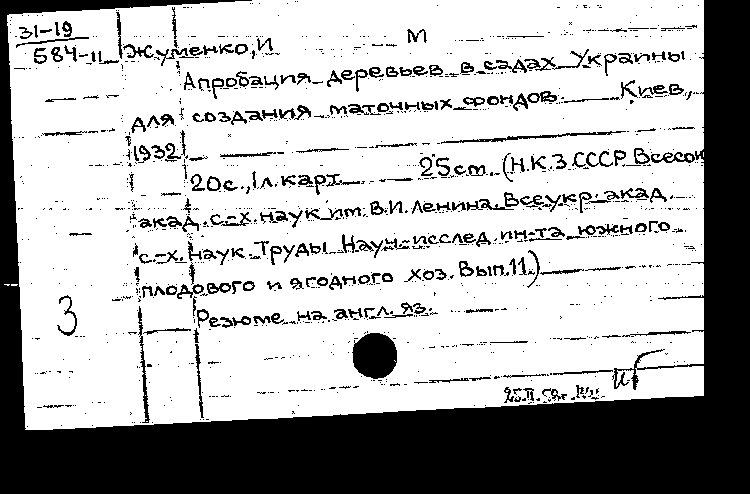 31-19
584-11 Жуменко, И М
Апробация деревьев в садах Украины
для создания маточных фондов. Киев,
1932
20с., 1л. карт 25 см. (Н.К.З. СССР Всесоюз
акад. с-х. наук им. В.И. Ленина. Всеукр. акад.
с.-х. наук. Труды Науч.-исслед. ин-та южного
плодового и ягодного хоз. Вып. 11.)
3
Резюме на англ. яз.